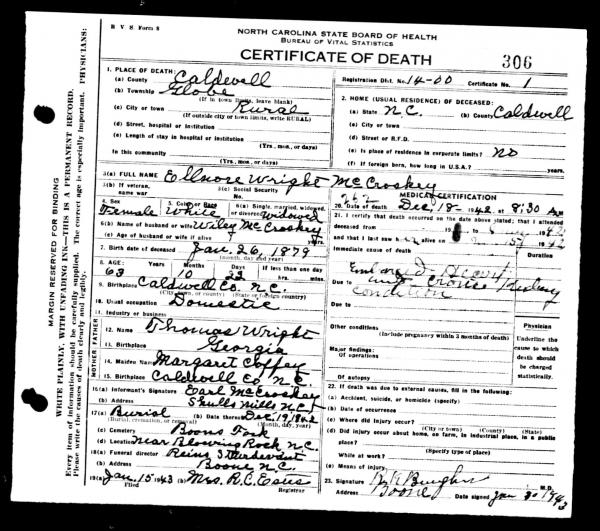 R V S Form 8
NORTH CAROLINA STATE BOARD OF HEALTH
BUREAU OF VITAL STATISTICS
CERTIFICATE OF DEATH
306
Registration Dist. No. 14-00 Certificate No. 1
1. PLACE OF DEATH:
(a) County Caldwell
(b) Township Globe
(If in town limits, leave blank)
(c) City or town Rural
(If outside city or town limits, write RURAL)
(d) Street, hospital or institution
(e) Length of stay in hospital or institution
(Yrs., mos., or days)
In this community
(Yrs., mos., or days)
2. HOME (USUAL RESIDENCE) OF DECEASED:
(a) State N.C. (b) County Caldwell
(c) City or town
(d) Street or R.F.D.
(e) Is place of residence in corporate limits? NO
(f) If foreign born, how long in U.S.A.? years
3(a) FULL NAME Ellnore Wright McCroskey
3(b) If veteran, name war
3(c) Social Security No.
4. Sex Female
5. Color or Race White
6(a) Single, married, widowed, or divorced Widowed
6(b) Name of husband or wife Wiley McCroskey
6(c) Age of husband or wife if alive
7. Birth date of deceased Jan. 26, 1879
(month, day and year)
8. AGE: Years Months Days If less than one day
63 10 23 hrs. min.
9. Birthplace Caldwell Co. N.C.
(City, town, or county) (State or foreign country)
10. Usual occupation Domestic
11. Industry or business
FATHER
12. Name Thomas Wright
13. Birthplace Georgia
MOTHER
14. Maiden Name Margaret Coffey
15. Birthplace Caldwell Co. N.C.
16(a) Informant's Signature Earl McCroskey
(b) Address Shulls Mills N.C.
17(a) Burial (b) Date thereof Dec. 19 1942
(Burial, cremation, or removal) (month) (day) (year)
(c) Cemetery Boons Fork
(d) Location Near Blowing Rock N.C.
18(a) Funeral director Reins Sturdevant
(b) Address Boone N.C.
19(a) Jan. 15 1943 (b) Mrs. R.C. Estes
Filed Registrar
MEDICAL CERTIFICATION
20. Date of death Dec. 18 - 1942 at 8:30 AM
21. I certify that death occurred on the date above stated; that I attended
deceased from 1942
and that I last saw alive on 1942
Immediate cause of death Duration
Due to
condition
Due to
Other conditions
(Include pregnancy within 3 months of death)
Major findings:
Of operations
Of autopsy
Physician
Underline the cause to which death should be charged statistically.
22. If death was due to external causes, fill in the following:
(a) Accident, suicide, or homicide (specify)
(b) Date of occurrence
(c) Where did injury occur?
(City or town) (County) (State)
(d) Did injury occur about home, on farm, in industrial place, in a public place?
While at work?
(Specify type of place)
(e) Means of injury
23. Signature M.D.
Address Boone Date signed Jan 30 1943
MARGIN RESERVED FOR BINDING
WRITE PLAINLY, WITH UNFADING INK—THIS IS A PERMANENT RECORD.
Every item of information should be carefully supplied. The correct age is especially important. PHYSICIANS:
Please write the causes of death clearly and legibly.